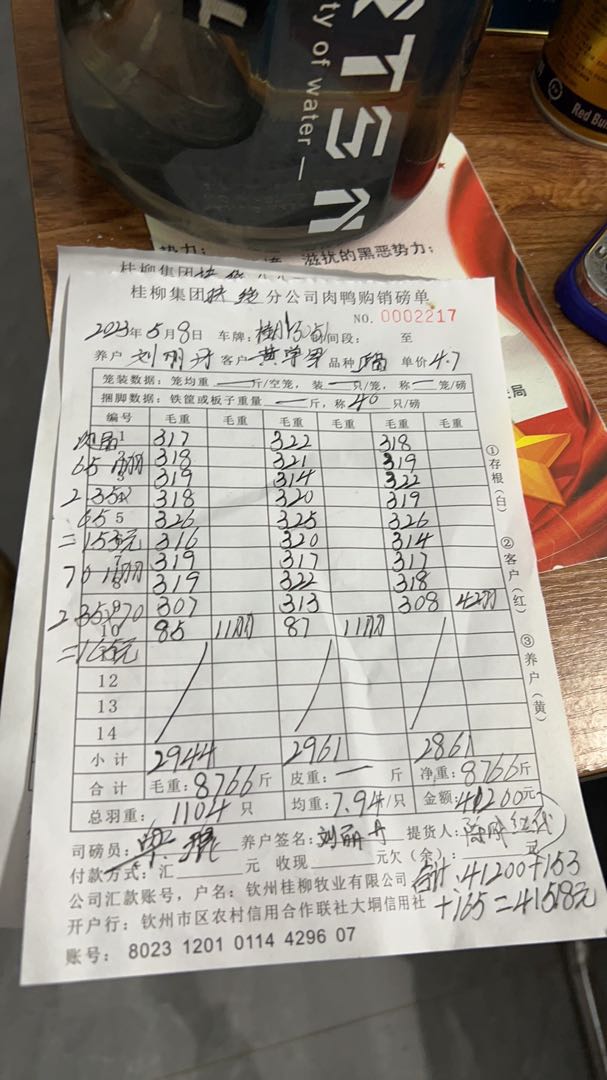 RTSN
ty of water —
Red Bu
势力；
滋扰的黑恶势力；
桂柳集团
局
桂柳集团扶绥分公司肉鸭购销磅单
NO. 0002217
2023年5月8日 车牌： 时间段： 至
养户 刘丽丹 客户 品种 单价 4.7
笼装数据：笼均重 — 斤/空笼，装 — 只/笼，称 — 笼/磅
捆脚数据：铁筐或板子重量 — 斤，称 40 只/磅
编号 毛重 毛重 毛重 毛重 毛重 毛重
1 317 322 318
65 318 321 319
3 319 314 322
2.35× 318 320 319
65 5 326 325 326
=153元 316 320 314
70 7 319 317 317
8 319 322 318
2.35×70 9 307 313 308 42羽
10 85 11羽 87 11羽
=165元
12
13
14
小计 2944 2961 2861
合计 毛重：8766斤 皮重：— 斤 净重：8766斤
总羽重： 1104 只 均重：7.94/只 金额：41200元
司磅员： 养户签名：刘丽丹 提货人：
付款方式：汇 元 收现 元欠（余）： 元
公司汇款账号，户名：钦州桂柳牧业有限公司 合计：41200+153
开户行：钦州市区农村信用合作联社大垌信用社 +165=41518元
账号： 8023 1201 0114 4296 07
①存根（白）
②客户（红）
③养户（黄）